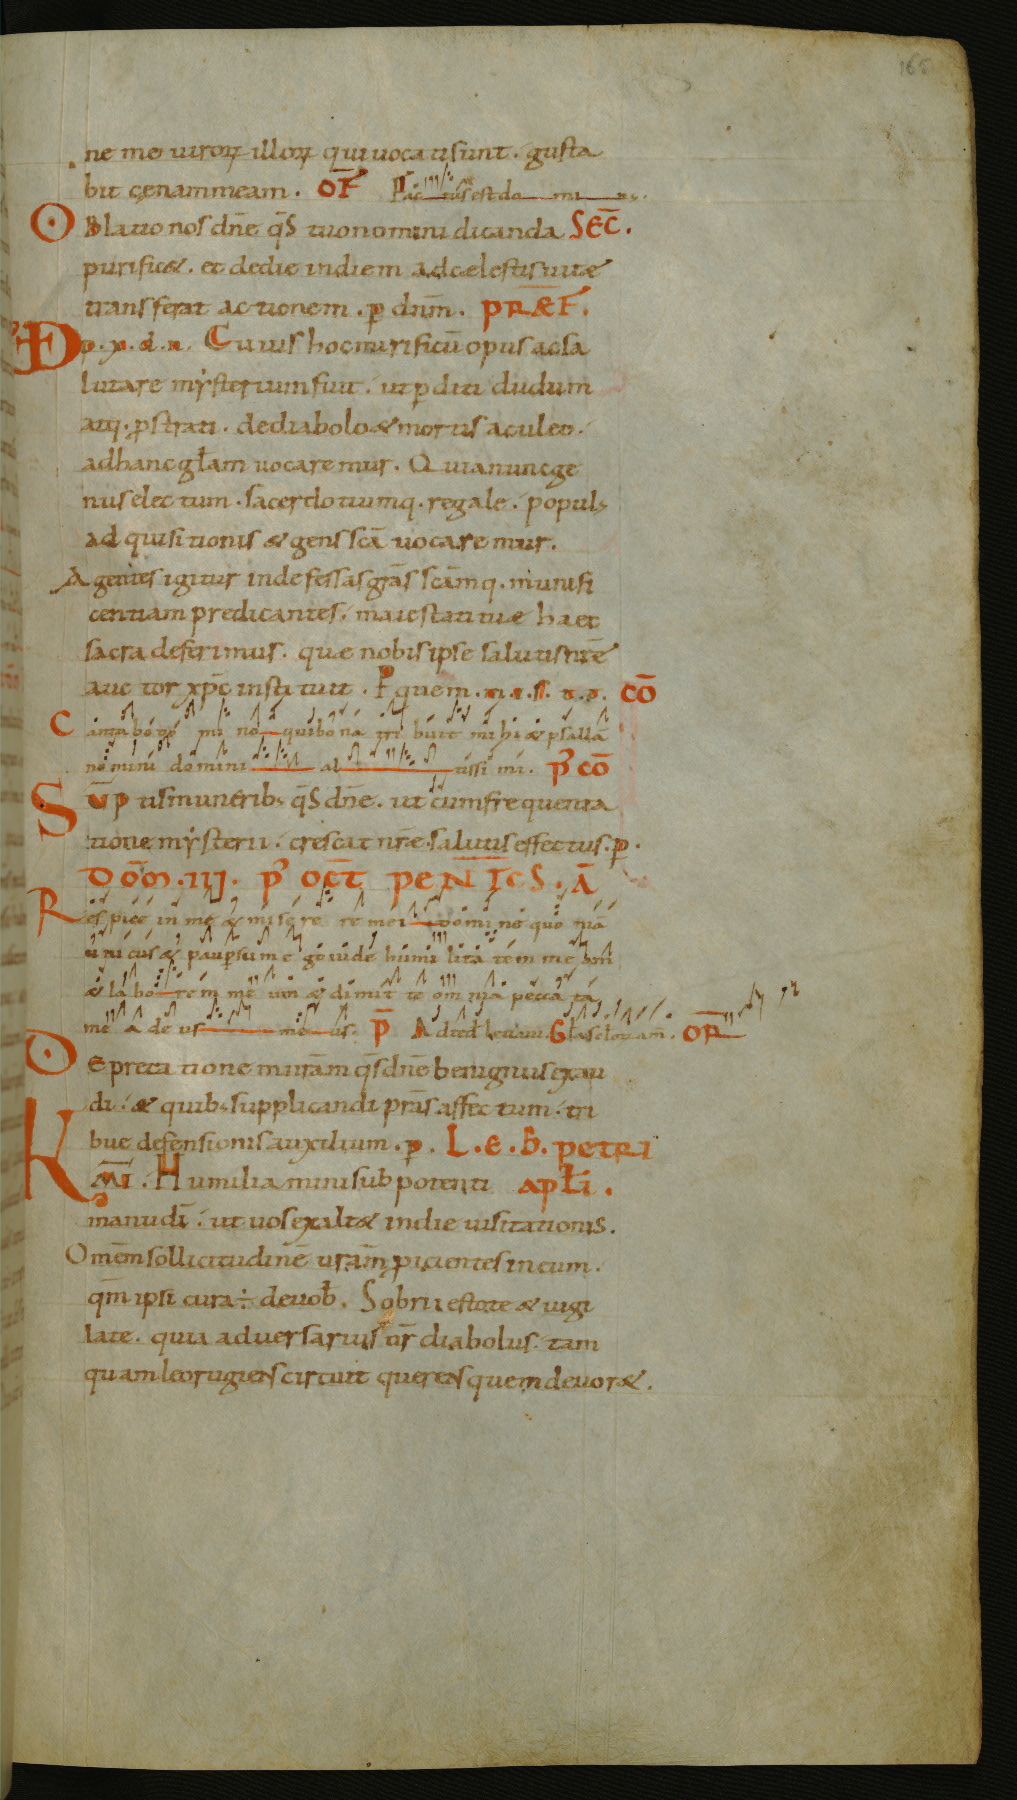 165
ne me uiroꝝ illoꝝ qui uocati sunt. gusta
bit cenam meam. OF̄ Factus est do mi nus.
Oblatio nos dn̄e q̄s tuo nomini dicanda SEC̄.
purificet. et de die in diem ad caelestis uitae
transferat actionem. ꝑ dn̄m. PRAEF̄.
VD p. x. d. n. Cuius hoc mirificū opus ac sa
lutare mẏsterium fuit. ut ꝑditi dudum
atq. ꝓstrati. de diabolo & mortis aculeo.
ad hanc gl̄am uocaremur. Qui a nunc ge
nus electum. sacerdotiumq. regale. popul;
ad quisitionis & gens sc̄a uocaremur.
Agentes igitur indefessas grās sc̄amq. munifi
centiam predicantes. maiestati tuę haec
sacra deferimus. quae nobis ipse salutis nr̄ę
auctor xp̄c instituit. P quem. m. t. l. a. a. CŌ
Cantabo do mi no qui bona tri buit mihi & psallā
nomini domini al tissi mi. P̄ CŌ
Sūptis muneribꝫ q̄s dn̄e. ut cum frequenta
tione mẏsterii. crescat nr̄ę salutis effectus. ꝑ.
DOM̄. III. P̄ OCT̄ PENTĒCS. Ā
Respice in me & misere re mei domine quo niā
unicus & pauꝑ sum ego uide humi litatem meam
& labo rem me um & dimitte omnia pecca ta
me a de us me us. P̄ Ad te dn̄e leuaui. Gl̄a seclorum am̄. OR̄
Deprecationem nr̄am q̄s dn̄e benignus exau
di. & quibꝫ supplicandi prās affectum. tri
bue defensionis auxilium. ꝑ. L. E. B̄. PETRI
KM̄I. Humiliamini sub potenti APL̄I.
manu dī. ut uos exalt& in die uisitationis.
Omēm sollicitudinē ur̄am ꝓicientes in eum.
qm̄ ipsi cura ÷ de uob̄. Sobrii estote & uigi
late. quia aduersarius ur̄ diabolus. tam
quam leo rugiens circuit querens quem deuor&.